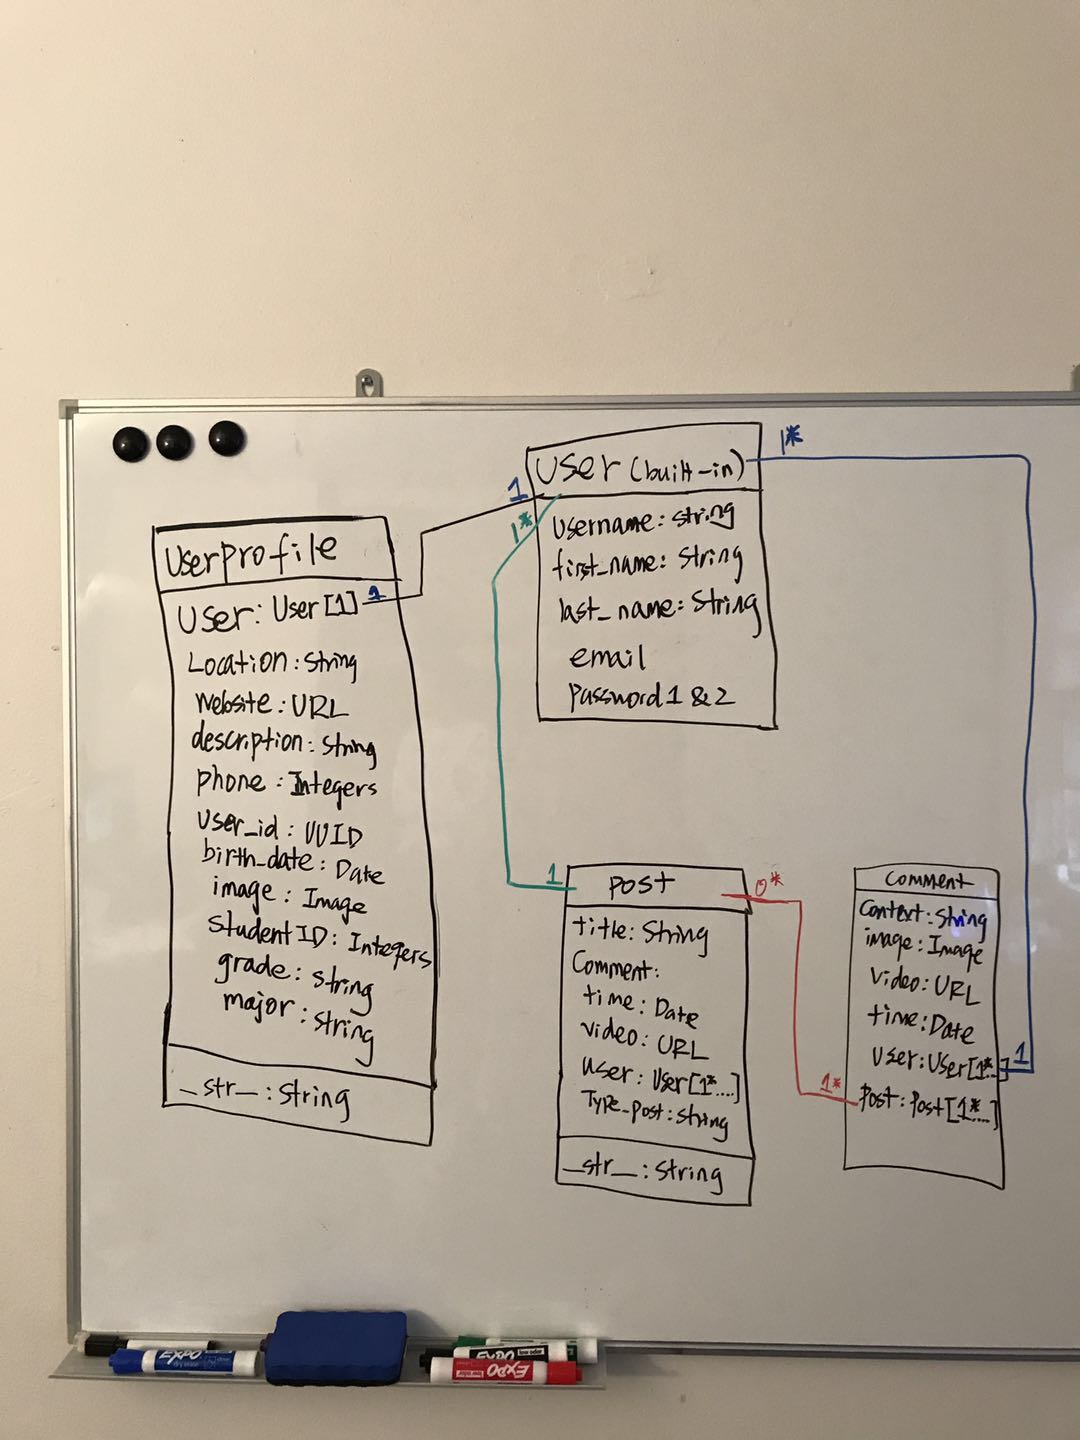 Userprofile
User: User[1]
Location: String
Website: URL
description: String
phone: Integers
User_id: UUID
birth_date: Date
image: Image
studentID: Integers
grade: string
major: string
_str_: String
1
1
User (built-in)
Username: string
first_name: String
last_name: String
email
Password 1 & 2
1*
1*
1
post
title: String
Comment:
time: Date
video: URL
User: User[1*....]
Type_post: String
_str_: String
0*
1*
Comment
Context: String
image: Image
Video: URL
time: Date
User: User[1*..]
1
Post: Post[1*....]
EXPO
EXPO
low odor
EXPO